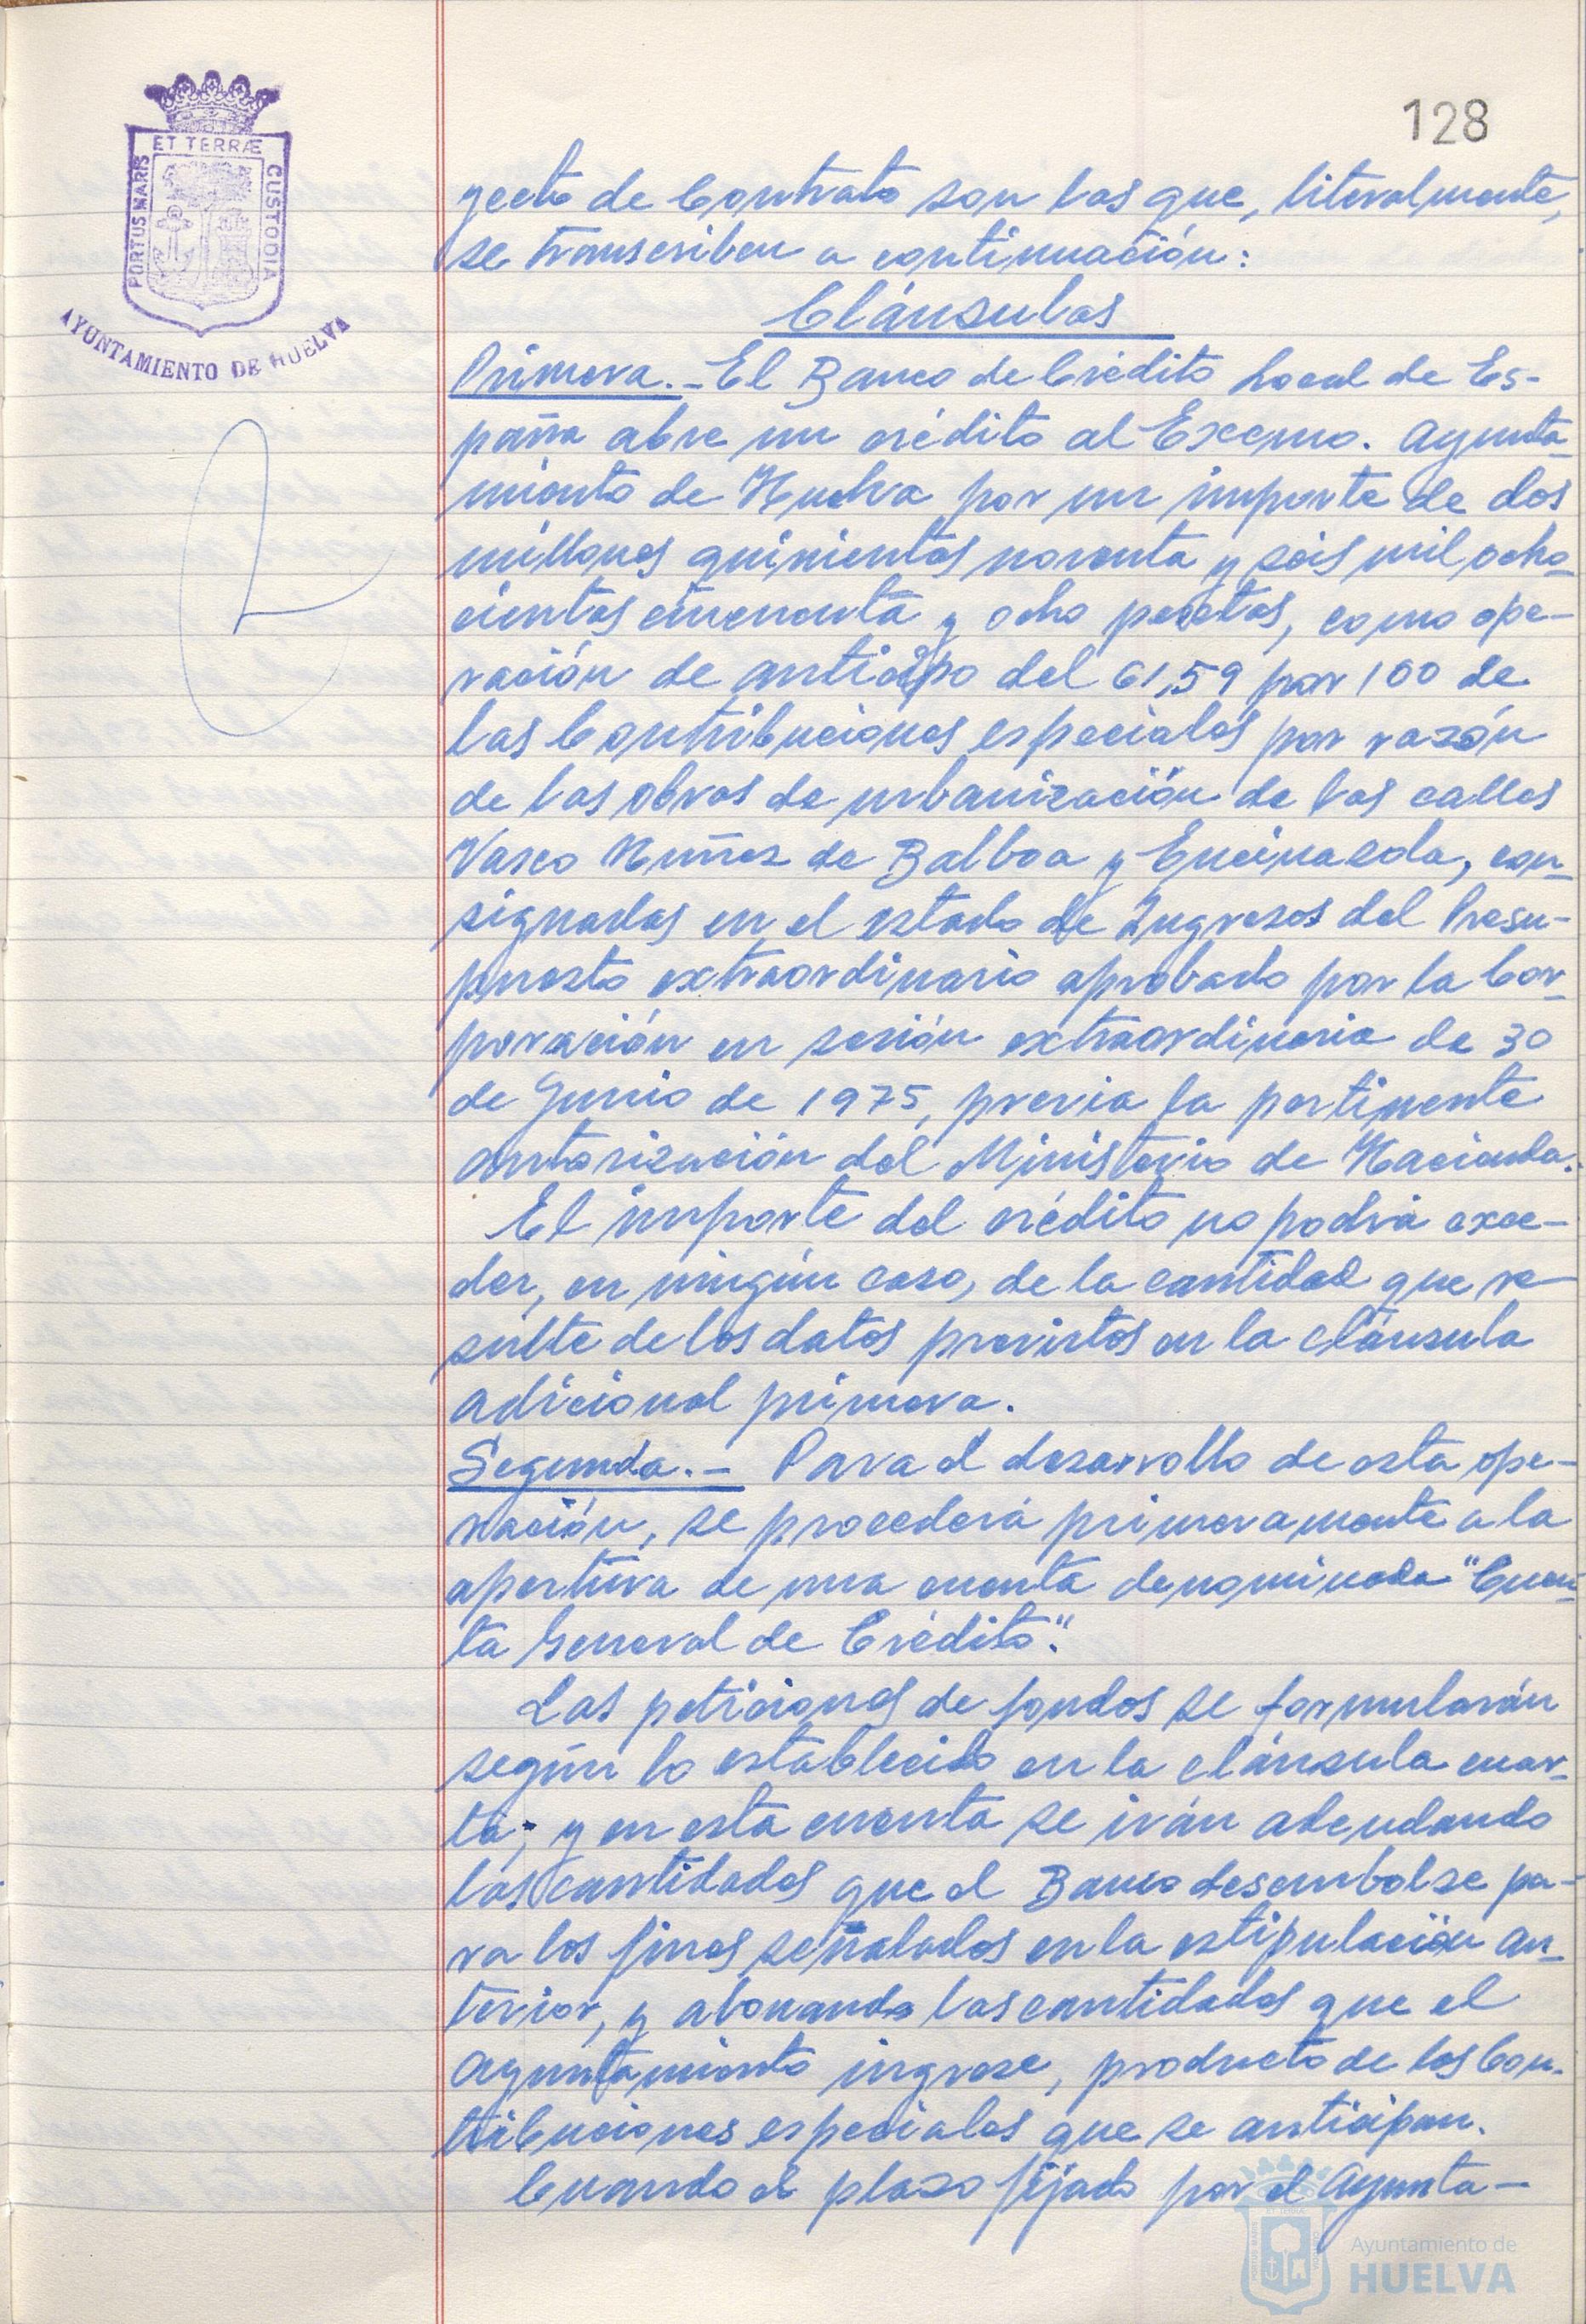 128
ET TERRÆ
PORTUS MARIS
CUSTODIA
AYUNTAMIENTO DE HUELVA
yecto de Contrato son las que, literalmente,
se transcriben a continuación:
Cláusulas
Primera.- El Banco de Crédito Local de Es-
paña abre un crédito al Excmo. Ayunta-
miento de Huelva por un importe de dos
millones quinientas noventa y seis mil ocho-
cientas cincuenta y ocho pesetas, como ope-
ración de anticipo del 61,59 por 100 de
las Contribuciones especiales por razón
de las obras de urbanización de las calles
Vasco Nuñez de Balboa y Encinasola, con-
signadas en el estado de Ingresos del Presu-
puesto extraordinario aprobado por la Cor-
poración en sesión extraordinaria de 30
de Junio de 1975, previa la pertinente
autorización del Ministerio de Hacienda.
El importe del crédito no podrá exce-
der, en ningún caso, de la cantidad que re-
sulte de los datos previstos en la cláusula
adicional primera.
Segunda.- Para el desarrollo de esta ope-
ración, se procederá primeramente a la
apertura de una cuenta denominada "Cuen-
ta General de Crédito".
Las peticiones de fondos se formularán
según lo establecido en la cláusula cuar-
ta; y en esta cuenta se irán adeudando
las cantidades que el Banco desembolse pa-
ra los fines señalados en la estipulación an-
terior, y abonando las cantidades que el
Ayuntamiento ingrese, producto de las Con-
tribuciones especiales que se anticipan.
Cuando el plazo fijado por el Ayunta-
Ayuntamiento de
HUELVA